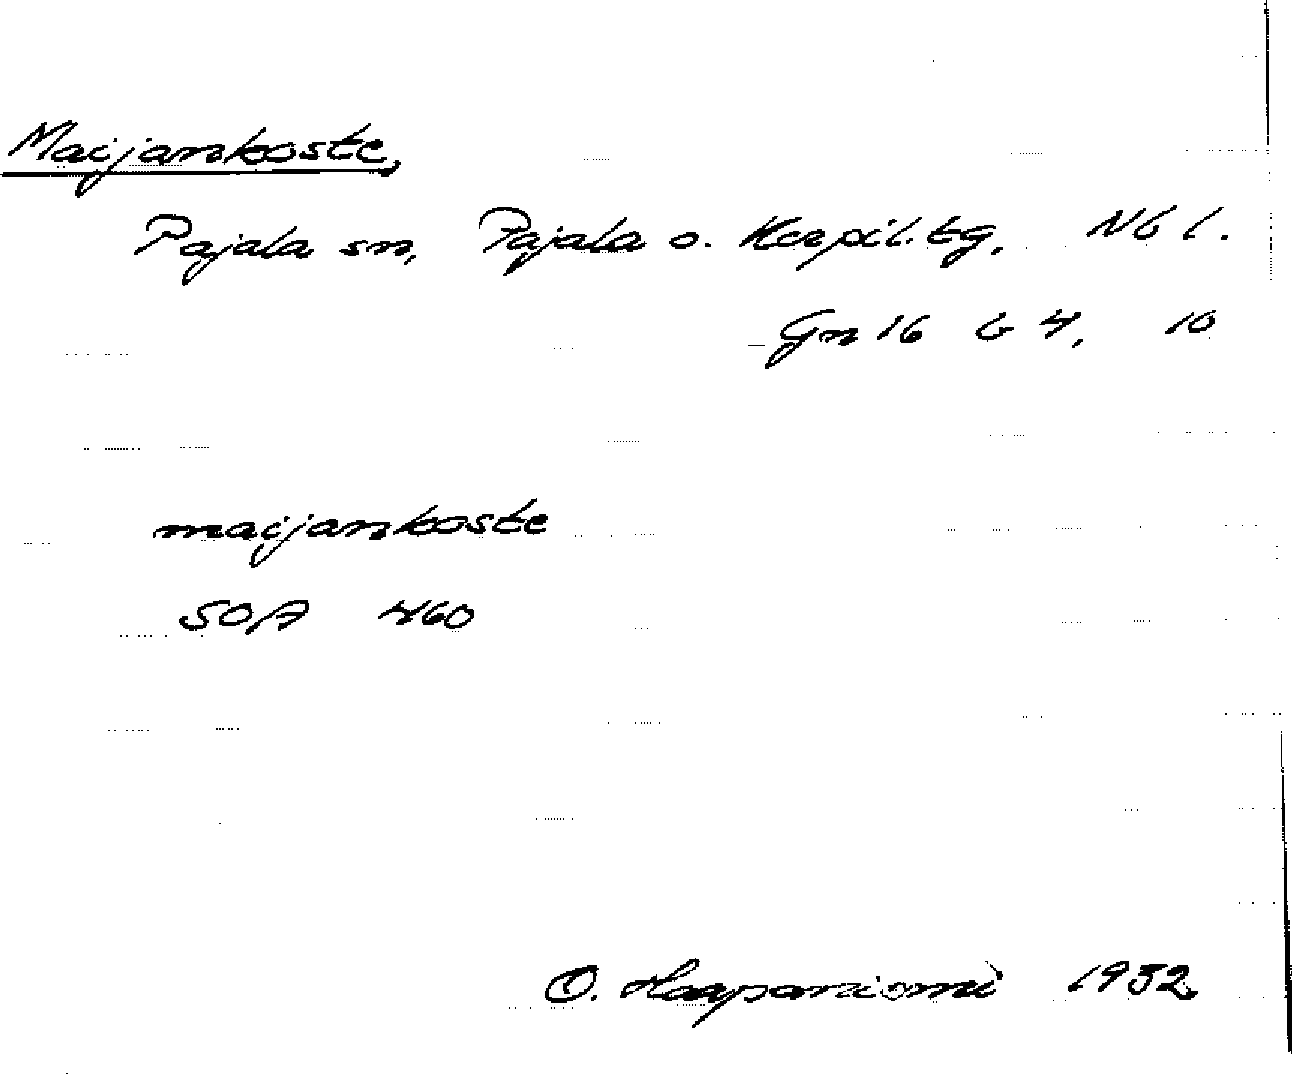 Maijankoste,
Pajala sn, Pajala o. Korpil. tg, Nb l.
Gn 16 b 4, 10
maijankoste
SOA 460
O. Haapaniemi 1932